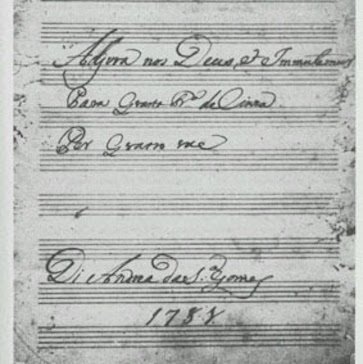 Adjuva nos Deus, & Immutemur
Para Quarta Fª de Cinza
Per Quatro
Di Andrea da S.ª Gomes
1788